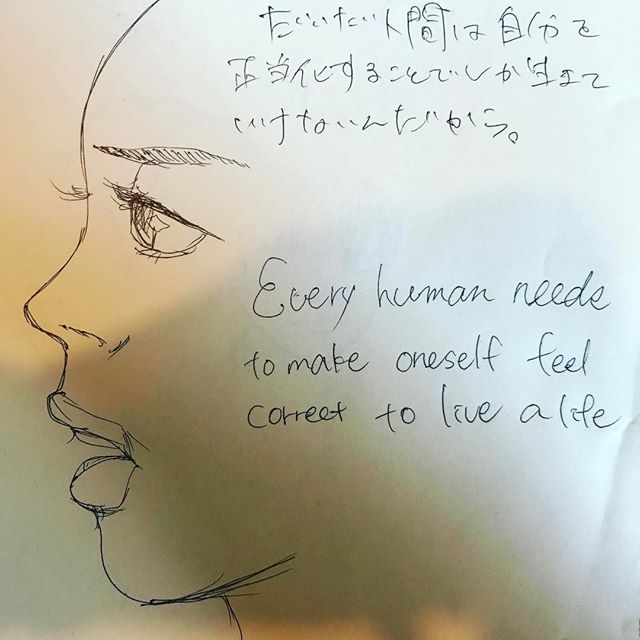 だいたい人間は自分を
正当化することでしか生きて
いけないんだから。
Every human needs
to make oneself feel
correct to live a life